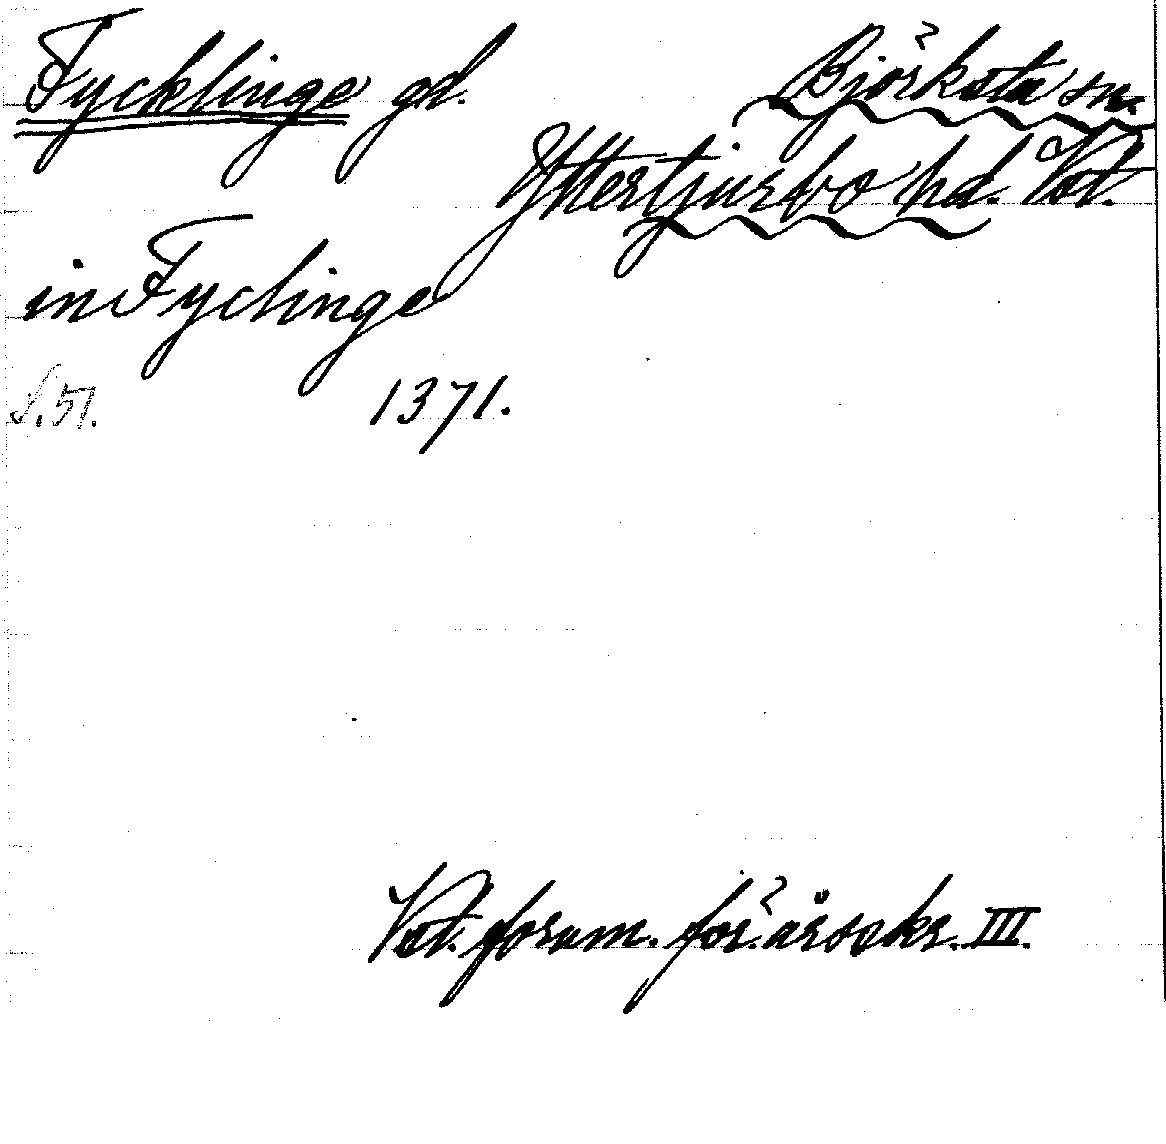 Fycklinge gd. Björksta sn.
Yttertjurbo hd. Vstl.
in Fyclinge
S. 51. 1371.
Vstl. fornm. för. årsskr. III.